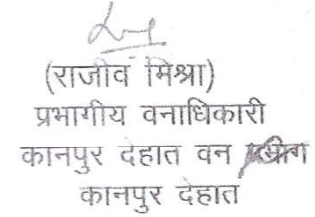 (राजीव मिश्रा)
प्रभागीय वनाधिकारी
कानपुर देहात वन
कानपुर देहात